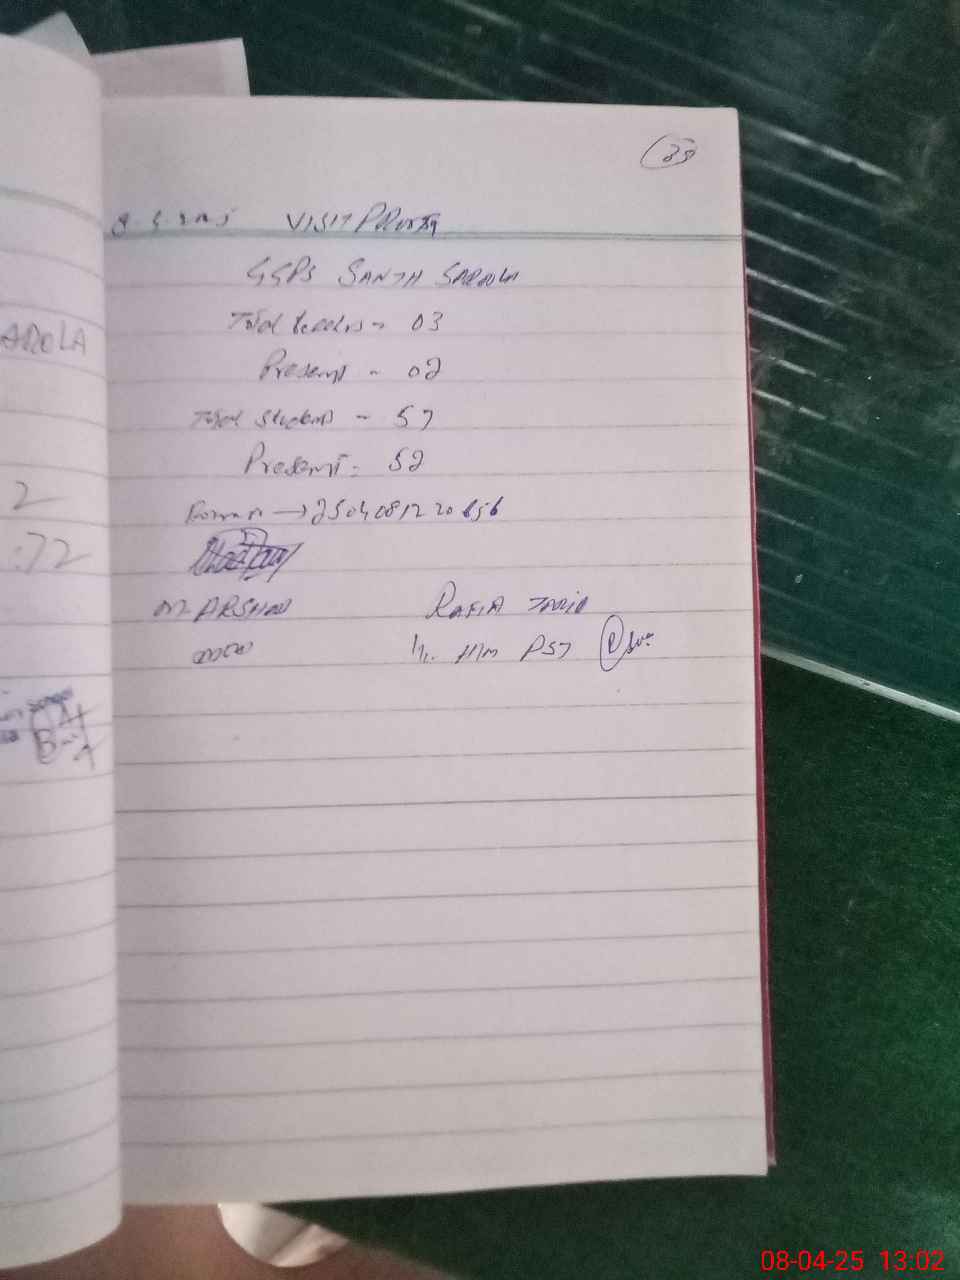 AROLA
2
:72
39
8.4.2025 VISIT
GGPS SANJH SAROLA
Total teachers - 03
Present - 02
Total students - 57
Present - 52
→ 2504081220656
M. ARSHAD
RAFIA TARIQ
HM PST
08-04-25 13:02